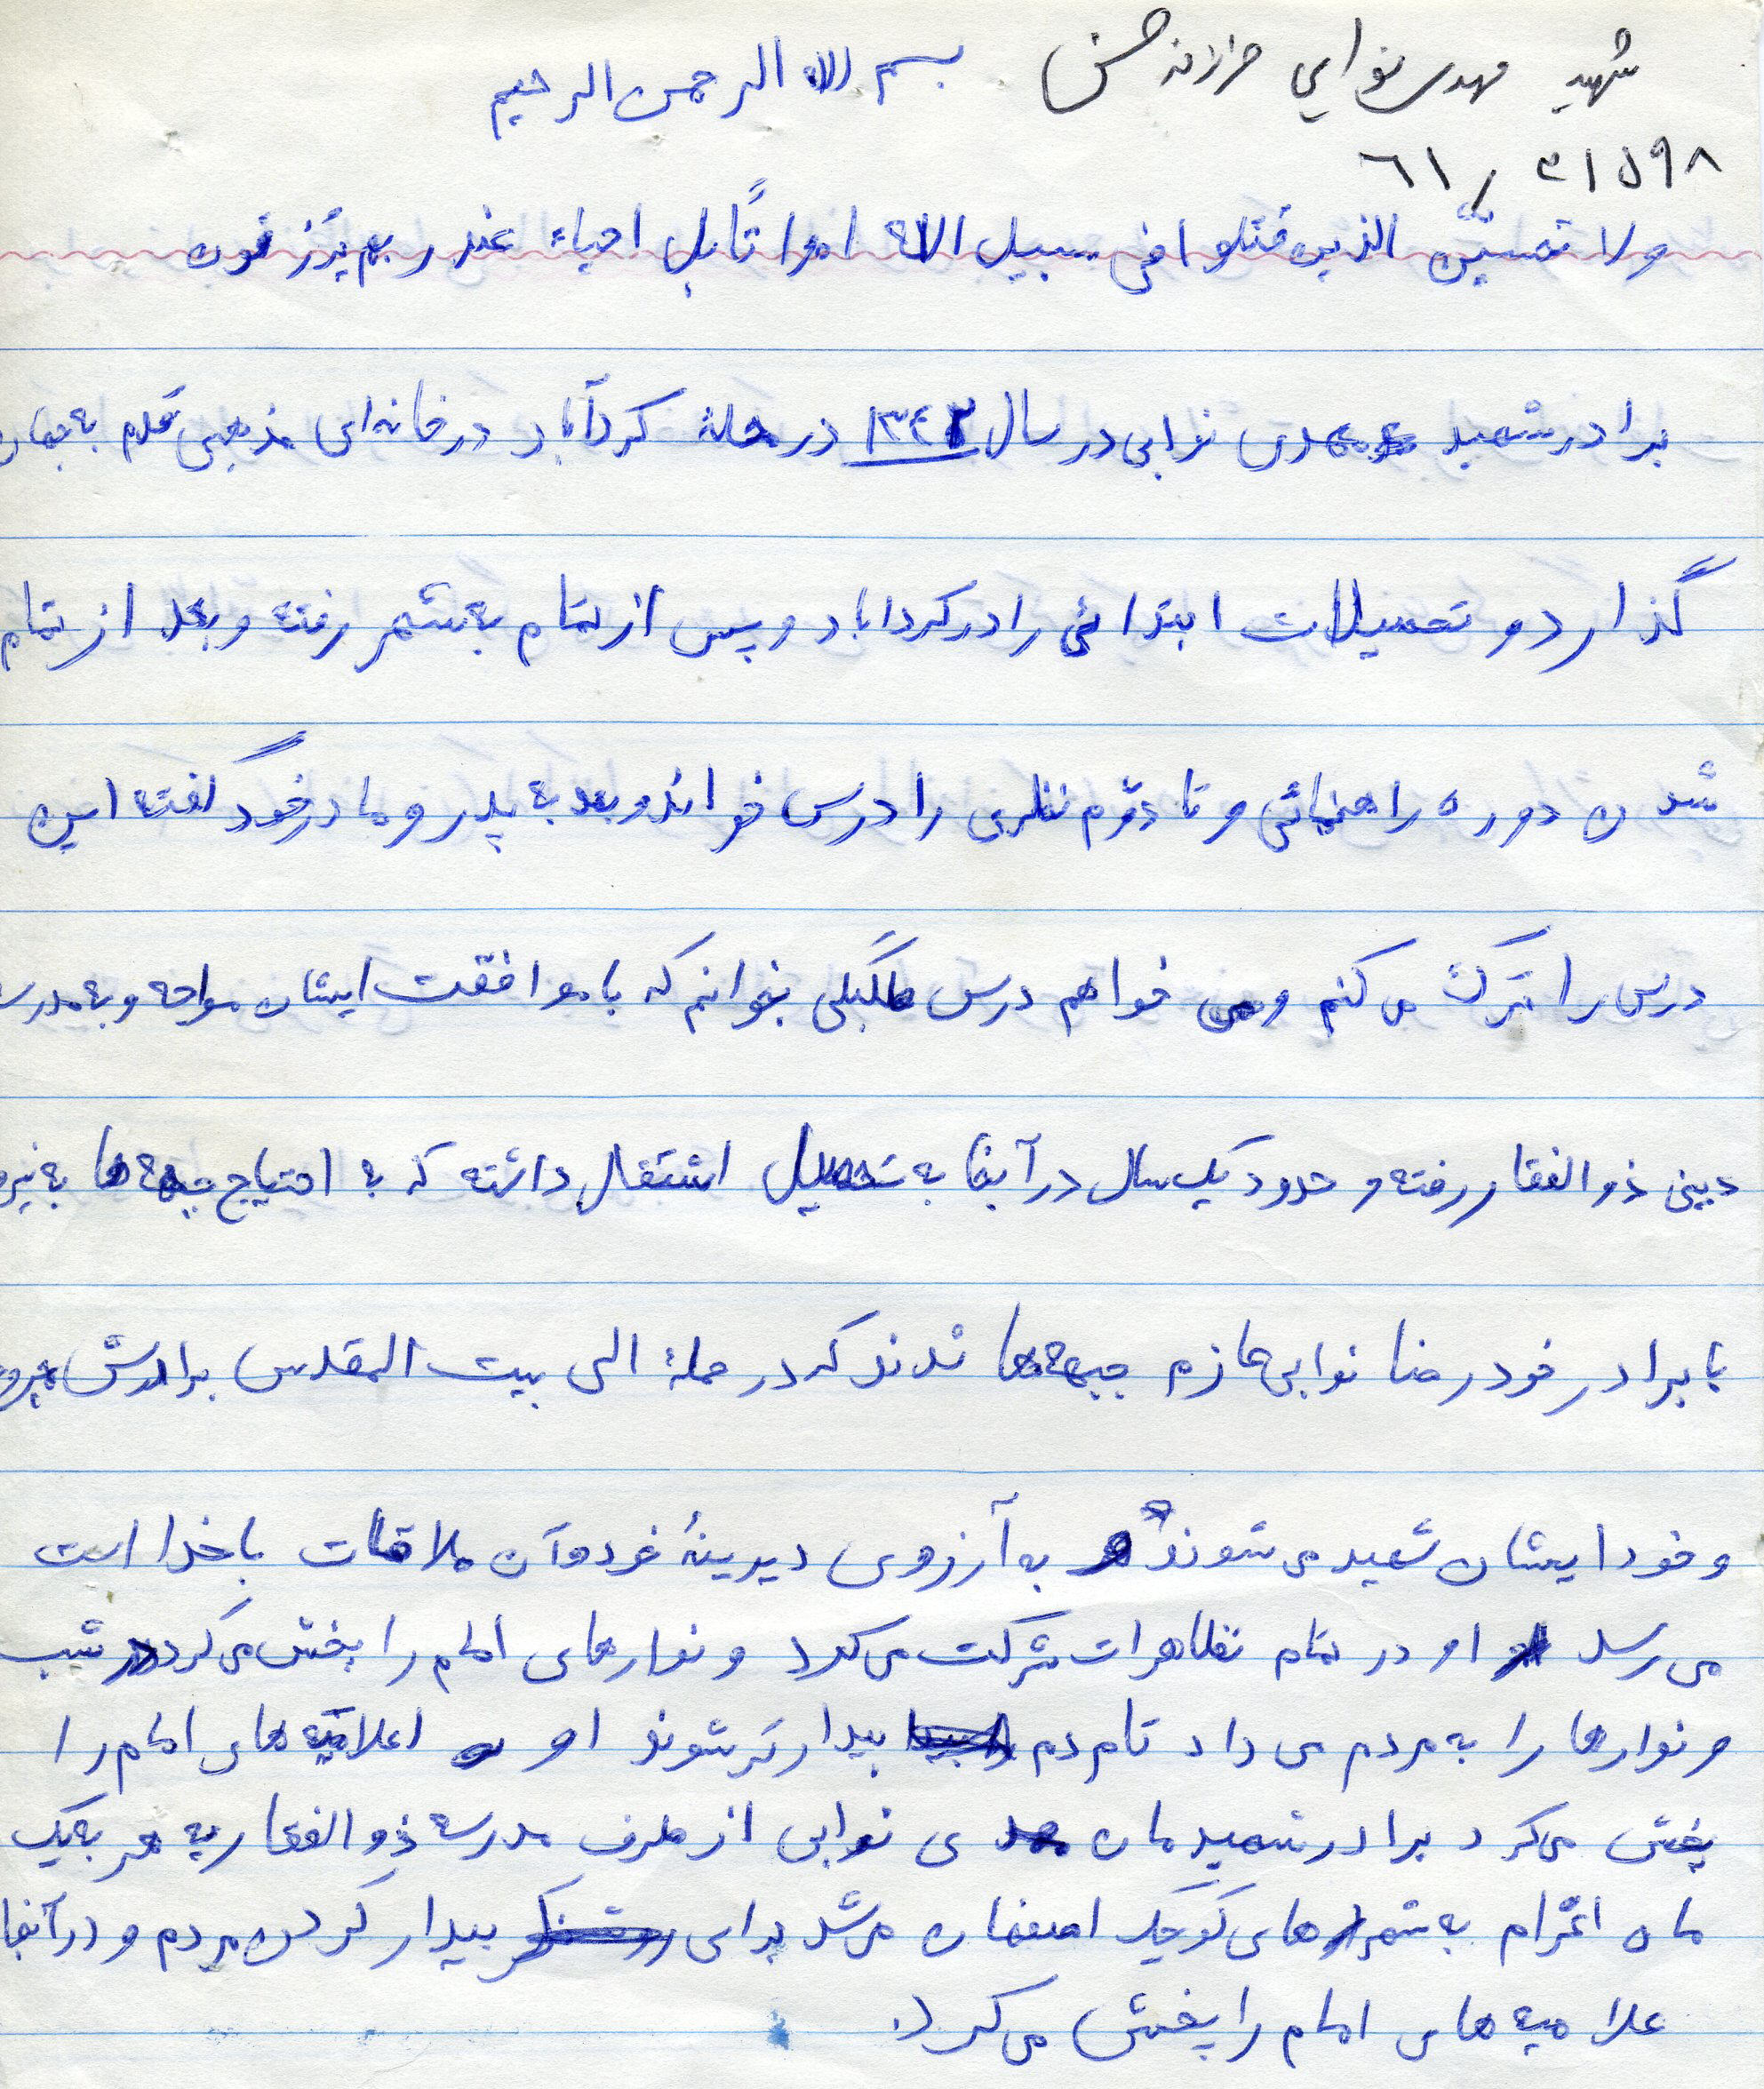 شهید مهدی نوابی فرزند حسن
بسم الله الرحمن الرحیم
۶۱/۳۱۵۹۸
ولا تحسبن الذین قتلوا فی سبیل الله امواتاً بل احیاء عند ربهم یرزقون
برادر شهید مهدی نوابی در سال ۱۳۴۲ در محلهٔ کردآباد در خانه‌ای مذهبی قدم به جهان
گذارد و تحصیلات ابتدائی را در کرداباد و پس از تمام به شهر رفته و بعد از تمام
شدن دوره راهنمائی و تا دوّم نظری را درس خواند و بعد به پدر و مادر خود گفته این
درس را ترک می کنم و می خواهم درس طلبگی بخوانم که با موافقت ایشان مواجه و به مدرسه
دینی ذوالفقار رفته و حدود یک سال در آنجا به تحصیل اشتغال داشته که با احتیاج جبهه ها به نیرو
با برادر خود رضا نوابی عازم جبهه‌ها شدند که در حملهٔ الی بیت المقدس برادرش مجروح
و خود ایشان شهید می شوند و به آرزوی دیرینهٔ خود و آن ملاقات با خدا است
می رسد او در تمام تظاهرات شرکت می کرد و نوارهای امام را پخش می کرد در شب
و نوارها را به مردم می داد تا مردم بیدارتر شوند او اعلامیه های امام را
پخش می کرد برادر شهیدمان مهدی نوابی از طرف مدرسه ذوالفقاریه هر به یک
ماه اعزام به شهرهای کوچک اصفهان می شد برای بیدار کردن مردم و در آنجا
علامیه های امام را پخش می کرد.